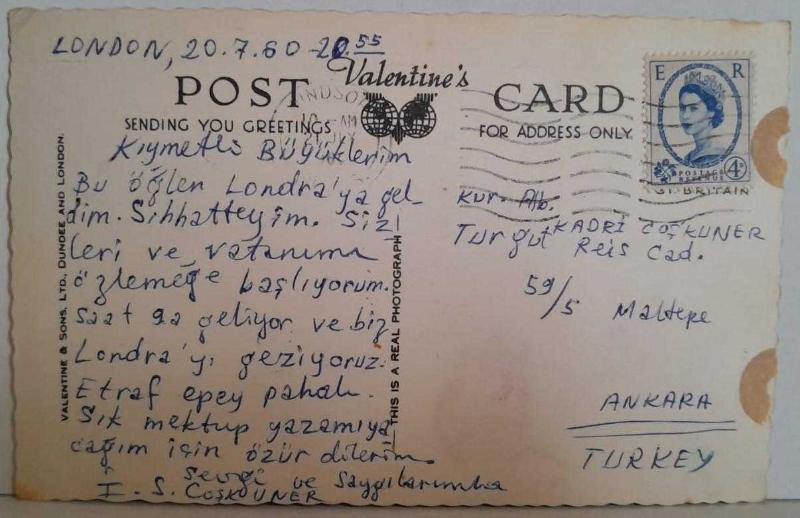 LONDON, 20.7.60 - 20.55
POST Valentine's CARD
SENDING YOU GREETINGS
FOR ADDRESS ONLY
E R
4D
POSTAGE REVENUE
WINDSOR
AM
BRITAIN
Kıymetli Büyüklerim
Bu öğlen Londra'ya gel
dim. Sıhhatteyim. Siz
leri ve vatanımı
özlemeğe başlıyorum.
Saat 9a geliyor ve biz
Londra'yı geziyoruz.
Etraf epey pahalı.
Sık mektup yazamıya
cağım için özür dilerim.
Sevgi ve Saygılarımla
İ. S. COŞKUNER
VALENTINE & SONS. LTD., DUNDEE AND LONDON.
THIS IS A REAL PHOTOGRAPH
Kur. Alb.
KADRİ COŞKUNER
Turgut Reis Cad.
59/5 Maltepe
ANKARA
TURKEY